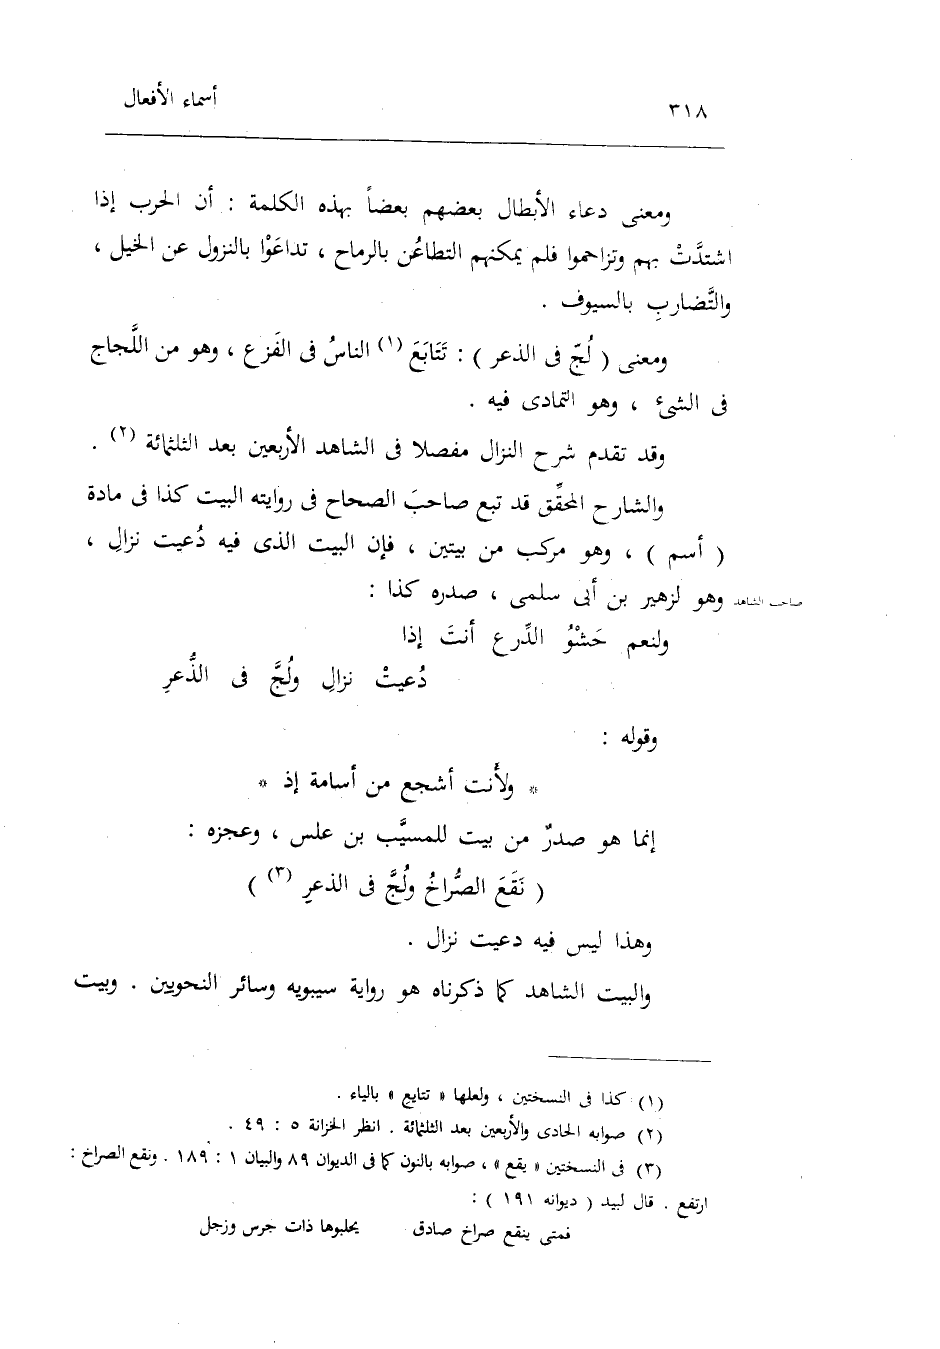 ٣١٨
أسماء الأفعال
ومعنى دعاء الأبطال بعضهم بعضاً بهذه الكلمة : أن الحرب إذا
اشتدَّتْ بهم وتزاحموا فلم يمكنهم التطاعُن بالرماح ، تداعَوْا بالنزول عن الخيل ،
والتَّضاربِ بالسيوف .
ومعنى ( لُجّ فى الذعر ) : تَتَابَعَ (١) الناسُ فى الفَزع ، وهو من اللَّجاج
فى الشئ ، وهو التمادى فيه .
وقد تقدم شرح النزال مفصلا فى الشاهد الأربعين بعد الثلثمائة (٢) .
والشارح المحقِّق قد تبع صاحبَ الصحاح فى روايته البيت كذا فى مادة
( أسم ) ، وهو مركب من بيتين ، فإن البيت الذى فيه دُعيت نزالِ ،
صاحب الشاهد
وهو لزهير بن أبى سلمى ، صدره كذا :
ولنعم حَشْوُ الدِّرع أنتَ إذا
دُعيتْ نزالِ ولُجَّ فى الذُّعرِ
وقوله :
* ولأَنت أشجع من أسامة إذ *
إنما هو صدرٌ من بيت للمسيَّب بن علس ، وعجزه :
( نَقَعَ الصُّراخُ ولُجَّ فى الذعرِ (٣) )
وهذا ليس فيه دعيت نزال .
والبيت الشاهد كما ذكرناه هو رواية سيبويه وسائر النحويين . وبيت
(١) كذا فى النسختين ، ولعلها « تتايع » بالياء .
(٢) صوابه الحادى والأربعين بعد الثلثمائة . انظر الخزانة ٥ : ٤٩ .
(٣) فى النسختين « يقع » ، صوابه بالنون كما فى الديوان ٨٩ والبيان ١ : ١٨٩ . ونقع الصراخ :
ارتفع . قال لبيد ( ديوانه ١٩١ ) :
فمتى ينقع صراخ صادق يحلبوها ذات جرس وزجل